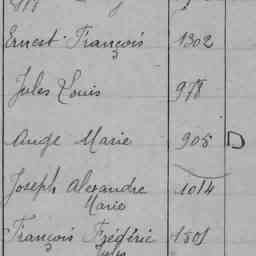 Ernest François 1302
Jules Louis 978
Ange Marie 905 D
Joseph Alexandre 1014
Marie
François Frédéric 1501
Jules